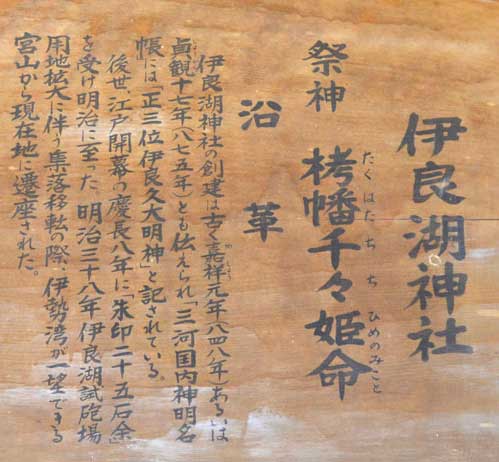 伊良湖神社
祭神 栲幡千々姫命
たくはたちぢひめのみこと
沿革
伊良湖神社の創建は古く嘉祥元年(八四八年)あるいは
貞観十七年(八七五年)とも伝えられ「三河国内神明名
帳」には「正三位伊良久大明神」と記されている。
後世、江戸開幕の慶長八年に「朱印二十五石余」
を受け明治に至った。明治三十八年伊良湖試砲場
用地拡大に伴う集落移転の際、伊勢湾が一望できる
宮山から現在地に遷座された。